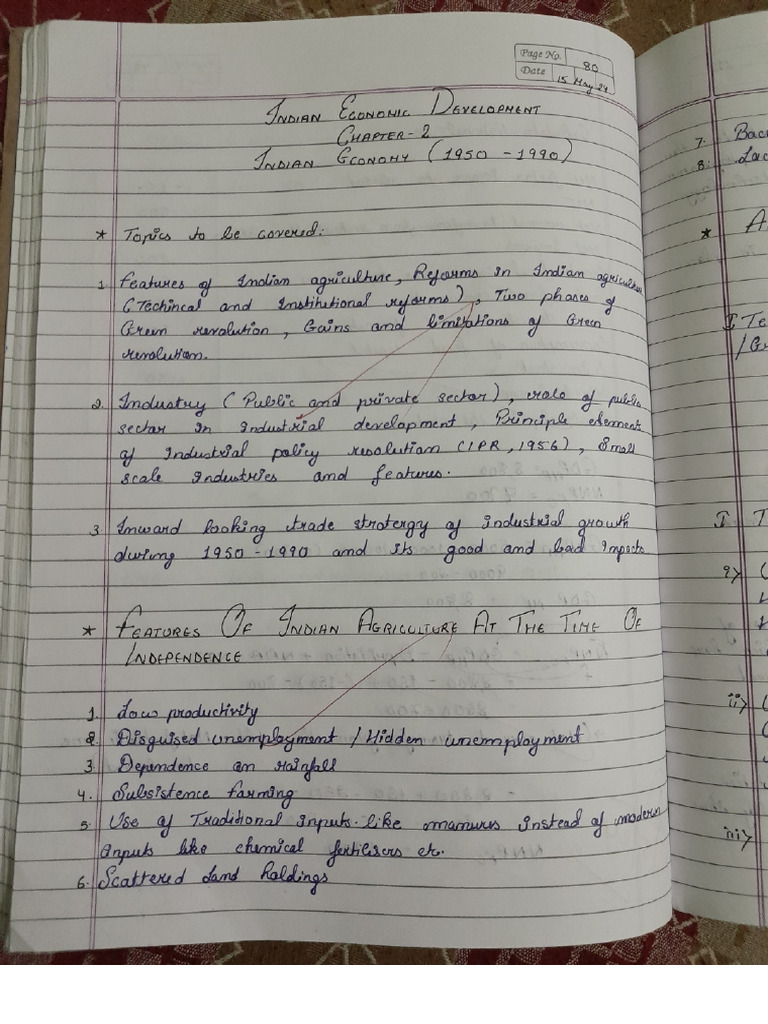 Page No. 80
Date 15 May 24
INDIAN ECONOMIC DEVELOPMENT
CHAPTER-2
INDIAN ECONOMY (1950 - 1990)
* Topics to be covered:
1. Features of Indian agriculture, Reforms in Indian agriculture
(Techincal and Institutional reforms), Two phases of
Green revolution, Gains and limitations of Green
revolution.
2. Industry (Public and private sector), role of public
sector in industrial development, Principle element
of industrial policy resolution (IPR, 1956), Small
scale industries and features.
3. Inward looking trade stratergy of industrial growth
during 1950-1990 and its good and bad impacts
* FEATURES OF INDIAN AGRICULTURE AT THE TIME OF
INDEPENDENCE
1. Low productivity
2. Disguised unemployment / Hidden unemployment
3. Dependence on rainfall
4. Subsistence farming
5. Use of Traditional inputs like manures instead of modern
inputs like chemical fertilisers etc.
6. Scattered Land holdings
7. Bac
8. Lac
* A
I Te
/ Gr
I T
i)
ii)
iii)